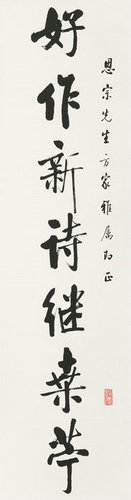 恩宗先生方家雅属即正
好作新詩继桒苧